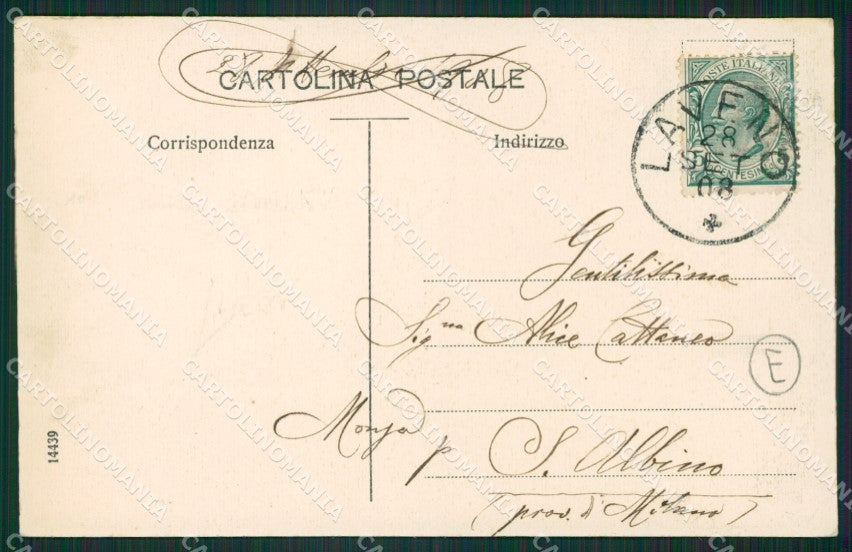 28 settembre 1908
CARTOLINA POSTALE
POSTE ITALIANE
CENTESIMI
LAVENO
28
SET
08
Corrispondenza
Indirizzo
Gentilissima
Sig.na Alice Cattaneo
E
Monza p S. Albino
(prov. di Milano)
14439
CARTOLINOMANIA